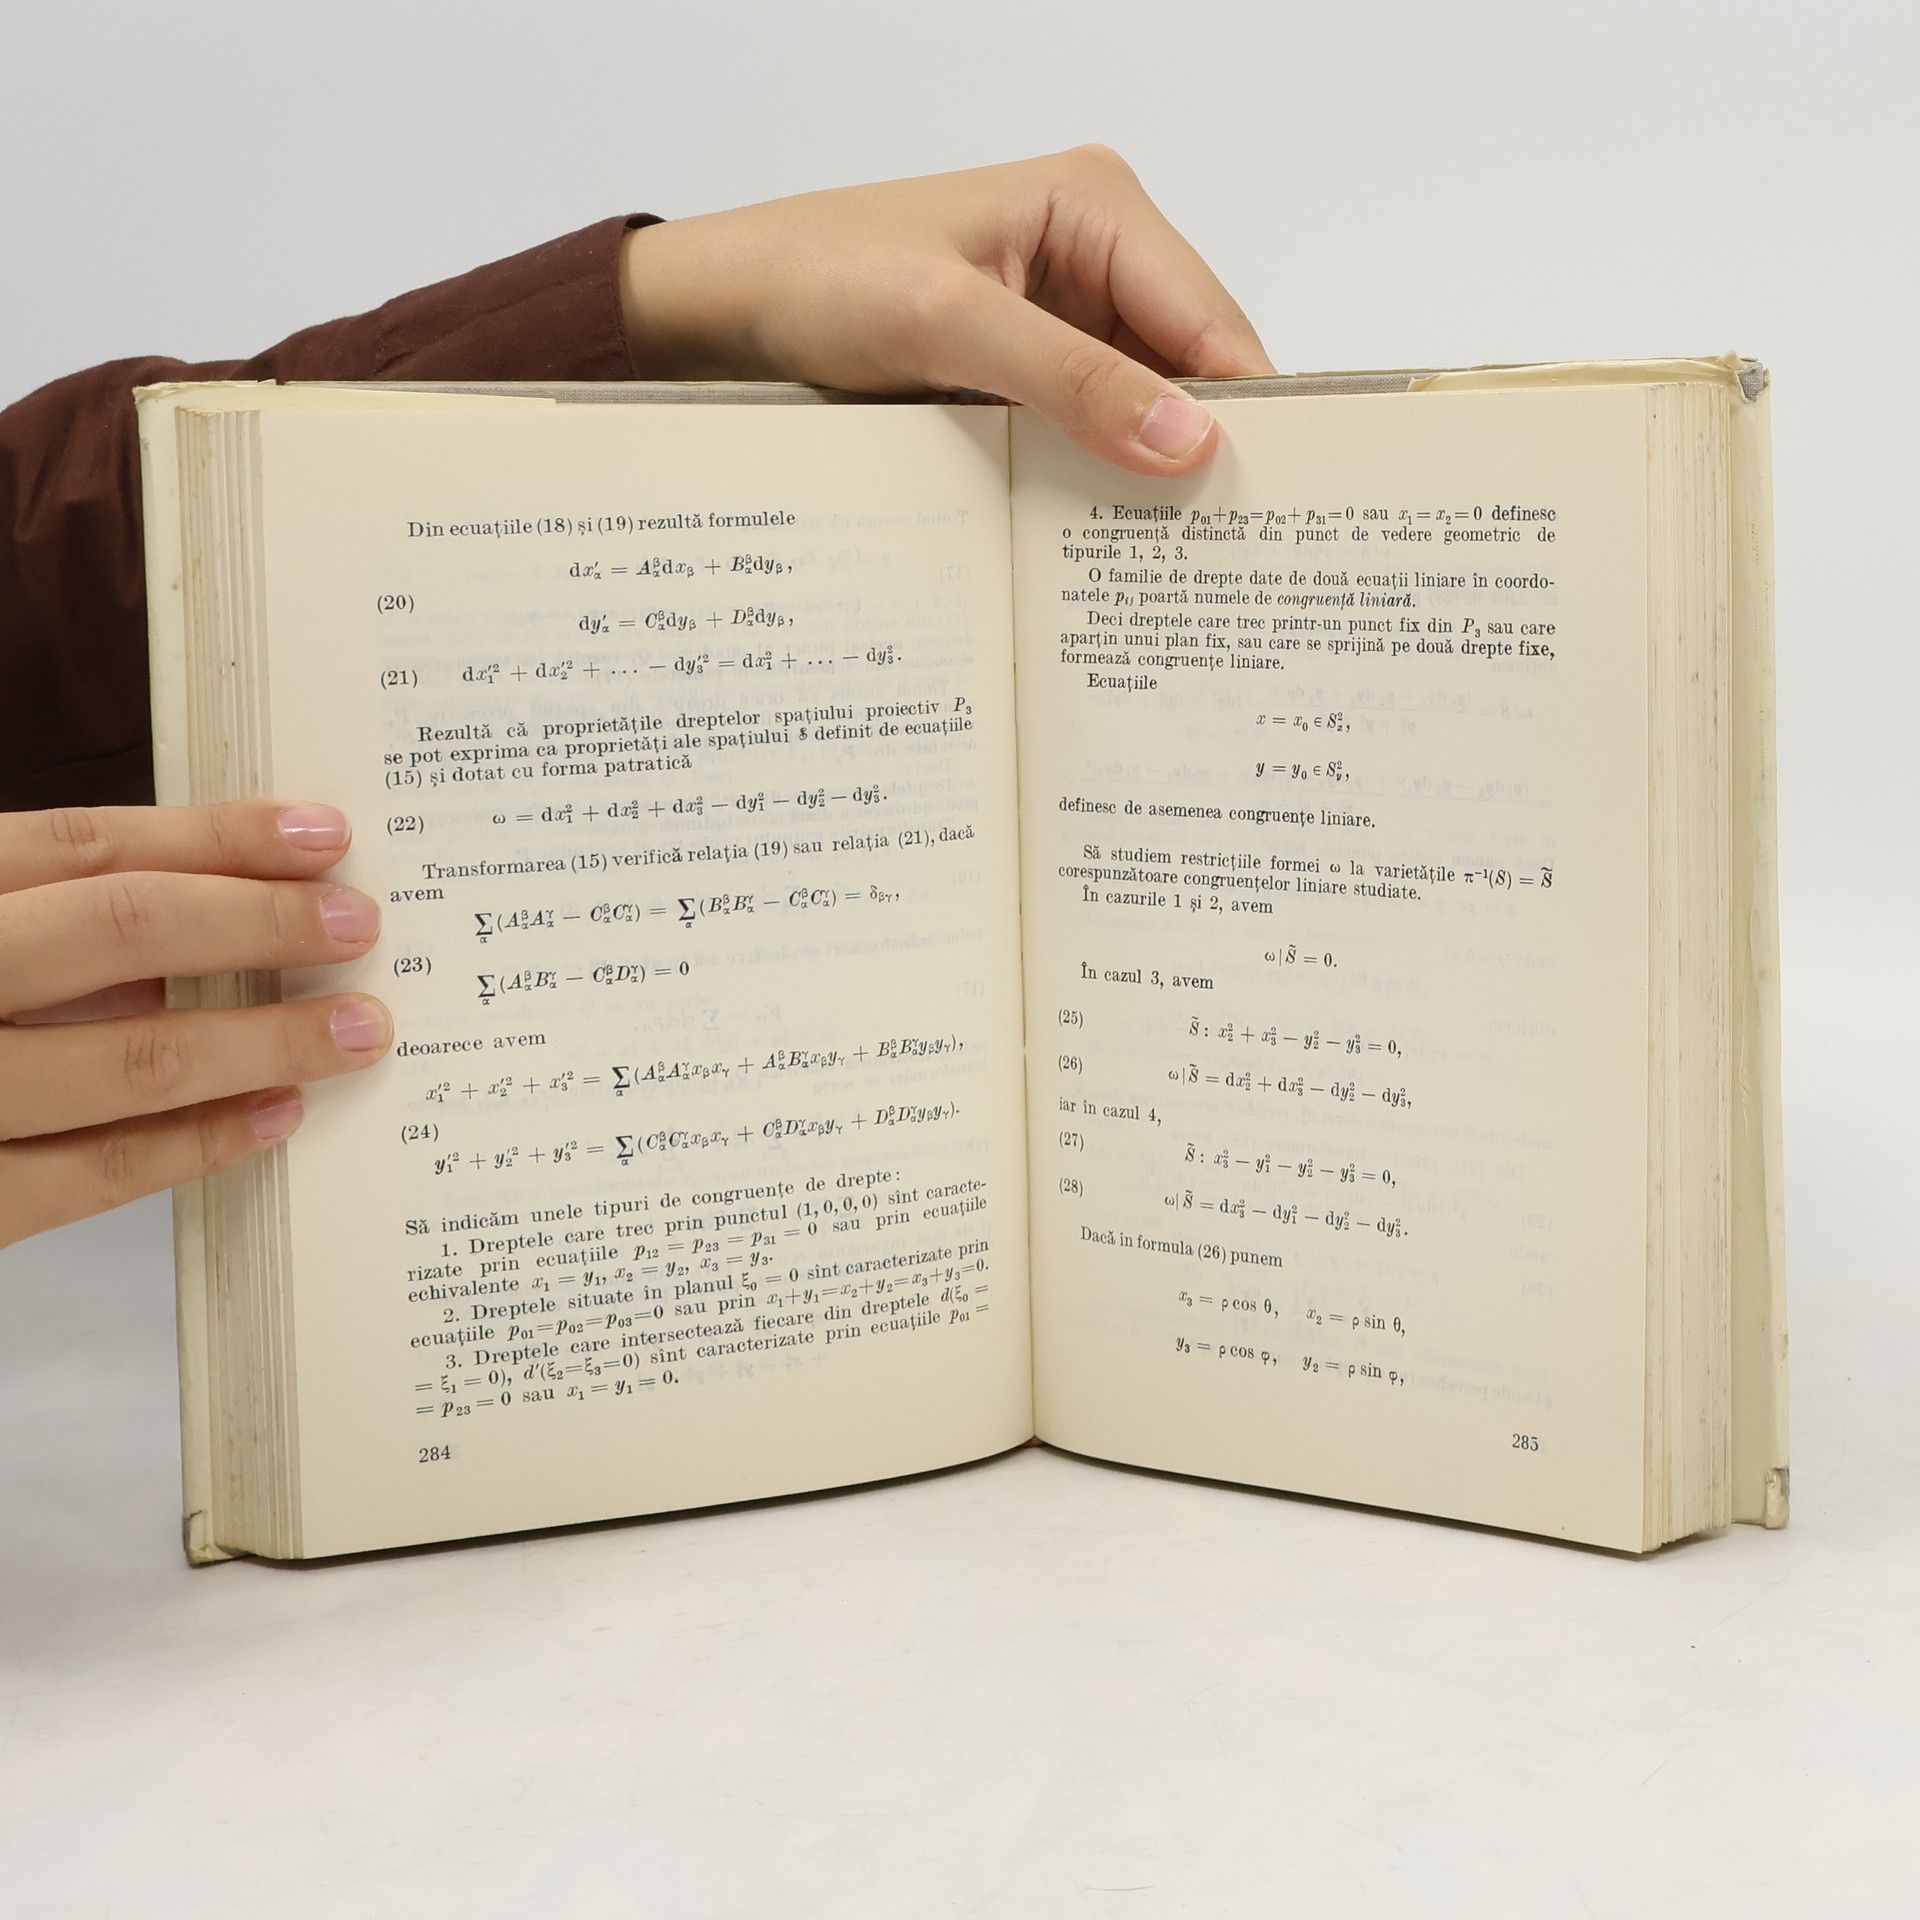 Din ecuațiile (18) și (19) rezultă formulele
dx′α = Aβα dxβ + Bβα dyβ,
(20)
dy′α = Cβα dyβ + Dβα dyβ,
(21) dx′₁² + dx′₂² + ... − dy′₃² = dx₁² + ... − dy₃².
Rezultă că proprietățile dreptelor spațiului proiectiv P₃
se pot exprima ca proprietăți ale spațiului $ definit de ecuațiile
(15) și dotat cu forma patratică
(22) ω = dx₁² + dx₂² + dx₃² − dy₁² − dy₂² − dy₃².
Transformarea (15) verifică relația (19) sau relația (21), dacă
avem
∑α (Aβα Aγα − Cβα Cγα) = ∑α (Bβα Bγα − Cβα Cγα) = δβγ,
(23)
∑α (Aβα Bγα − Cβα Dγα) = 0
deoarece avem
x′₁² + x′₂² + x′₃² = ∑α (Aβα Aγα xβxγ + Aβα Bγα xβyγ + Bβα Bγα yβyγ),
(24)
y′₁² + y′₂² + y′₃² = ∑α (Cβα Cγα xβxγ + Cβα Dγα xβyγ + Dβα Dγα yβyγ).
Să indicăm unele tipuri de congruențe de drepte :
1. Dreptele care trec prin punctul (1, 0, 0, 0) sînt caracte-
rizate prin ecuațiile p₁₂ = p₂₃ = p₃₁ = 0 sau prin ecuațiile
echivalente x₁ = y₁, x₂ = y₂, x₃ = y₃.
2. Dreptele situate în planul ξ₀ = 0 sînt caracterizate prin
ecuațiile p₀₁=p₀₂=p₀₃=0 sau prin x₁+y₁=x₂+y₂=x₃+y₃=0.
3. Dreptele care intersectează fiecare din dreptele d(ξ₀ =
= ξ₁ = 0), d′(ξ₂=ξ₃=0) sînt caracterizate prin ecuațiile p₀₁ =
= p₂₃ = 0 sau x₁ = y₁ = 0.
284
4. Ecuațiile p₀₁+p₂₃=p₀₂+p₃₁=0 sau x₁ = x₂ = 0 definesc
o congruență distinctă din punct de vedere geometric de
tipurile 1, 2, 3.
O familie de drepte date de două ecuații liniare în coordo-
natele pᵢⱼ poartă numele de congruență liniară.
Deci dreptele care trec printr-un punct fix din P₃ sau care
aparțin unui plan fix, sau care se sprijină pe două drepte fixe,
formează congruențe liniare.
Ecuațiile
x = x₀ ∈ S²ₓ,
y = y₀ ∈ S²y,
definesc de asemenea congruențe liniare.
Să studiem restricțiile formei ω la varietățile π⁻¹(S) = S̃
corespunzătoare congruențelor liniare studiate.
În cazurile 1 și 2, avem
ω | S̃ = 0.
În cazul 3, avem
(25) S̃ : x₂² + x₃² − y₂² − y₃² = 0,
(26) ω | S̃ = dx₂² + dx₃² − dy₂² − dy₃²,
iar în cazul 4,
(27) S̃ : x₃² − y₁² − y₂² − y₃² = 0,
(28) ω | S̃ = dx₃² − dy₁² − dy₂² − dy₃².
Dacă în formula (26) punem
x₃ = ρ cos θ, x₂ = ρ sin θ,
y₃ = ρ cos φ, y₂ = ρ sin φ,
285